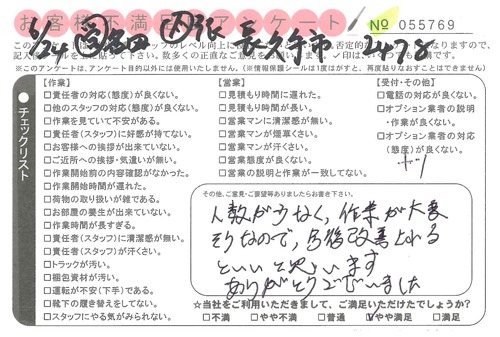 お客様不満足アンケート
№ 055769
6/24
長久手市
2478
※このアンケートは、アンケート目的以外には使用いたしません。(※情報保護シールは1度はがすと、再度貼りなおすことはできません)
チェックリスト
【作業】
□責任者の対応(態度)が良くない。
□他のスタッフの対応(態度)が良くない。
□作業を見ていて不安がある。
□責任者(スタッフ)に好感が持てない。
□お客様への挨拶が出来ていない。
□ご近所への挨拶・気遣いが無い。
□作業開始前の内容確認がなかった。
□作業開始時間が遅れた。
□荷物の取り扱いが雑である。
□お部屋の養生が出来ていない。
□作業時間が長すぎる。
□責任者(スタッフ)に清潔感が無い。
□責任者(スタッフ)が汗くさい。
□トラックが汚い。
□梱包資材が汚い。
□運転が不安(下手)である。
□靴下の履き替えをしてない。
□スタッフにやる気がみられない。
【営業】
□見積もり時間に遅れた。
□見積もり時間が長い。
□営業マンに清潔感が無い。
□営業マンが煙草くさい。
□営業マンが汗くさい。
□営業態度が良くない。
□営業の説明と作業が一致してない。
【受付・その他】
□電話の対応が良くない。
□オプション業者の説明
・作業が良くない。
□オプション業者の対応
(態度)が良くない。
その他、ご意見・ご要望等ありましたらお書き下さい。
人数が少なく、作業が大変
そうなので、今後改善される
といいと思います
ありがとうございました
☆当社をご利用いただきまして、ご満足いただけたでしょうか?
□不満 □やや不満 □普通 ☑やや満足 □満足